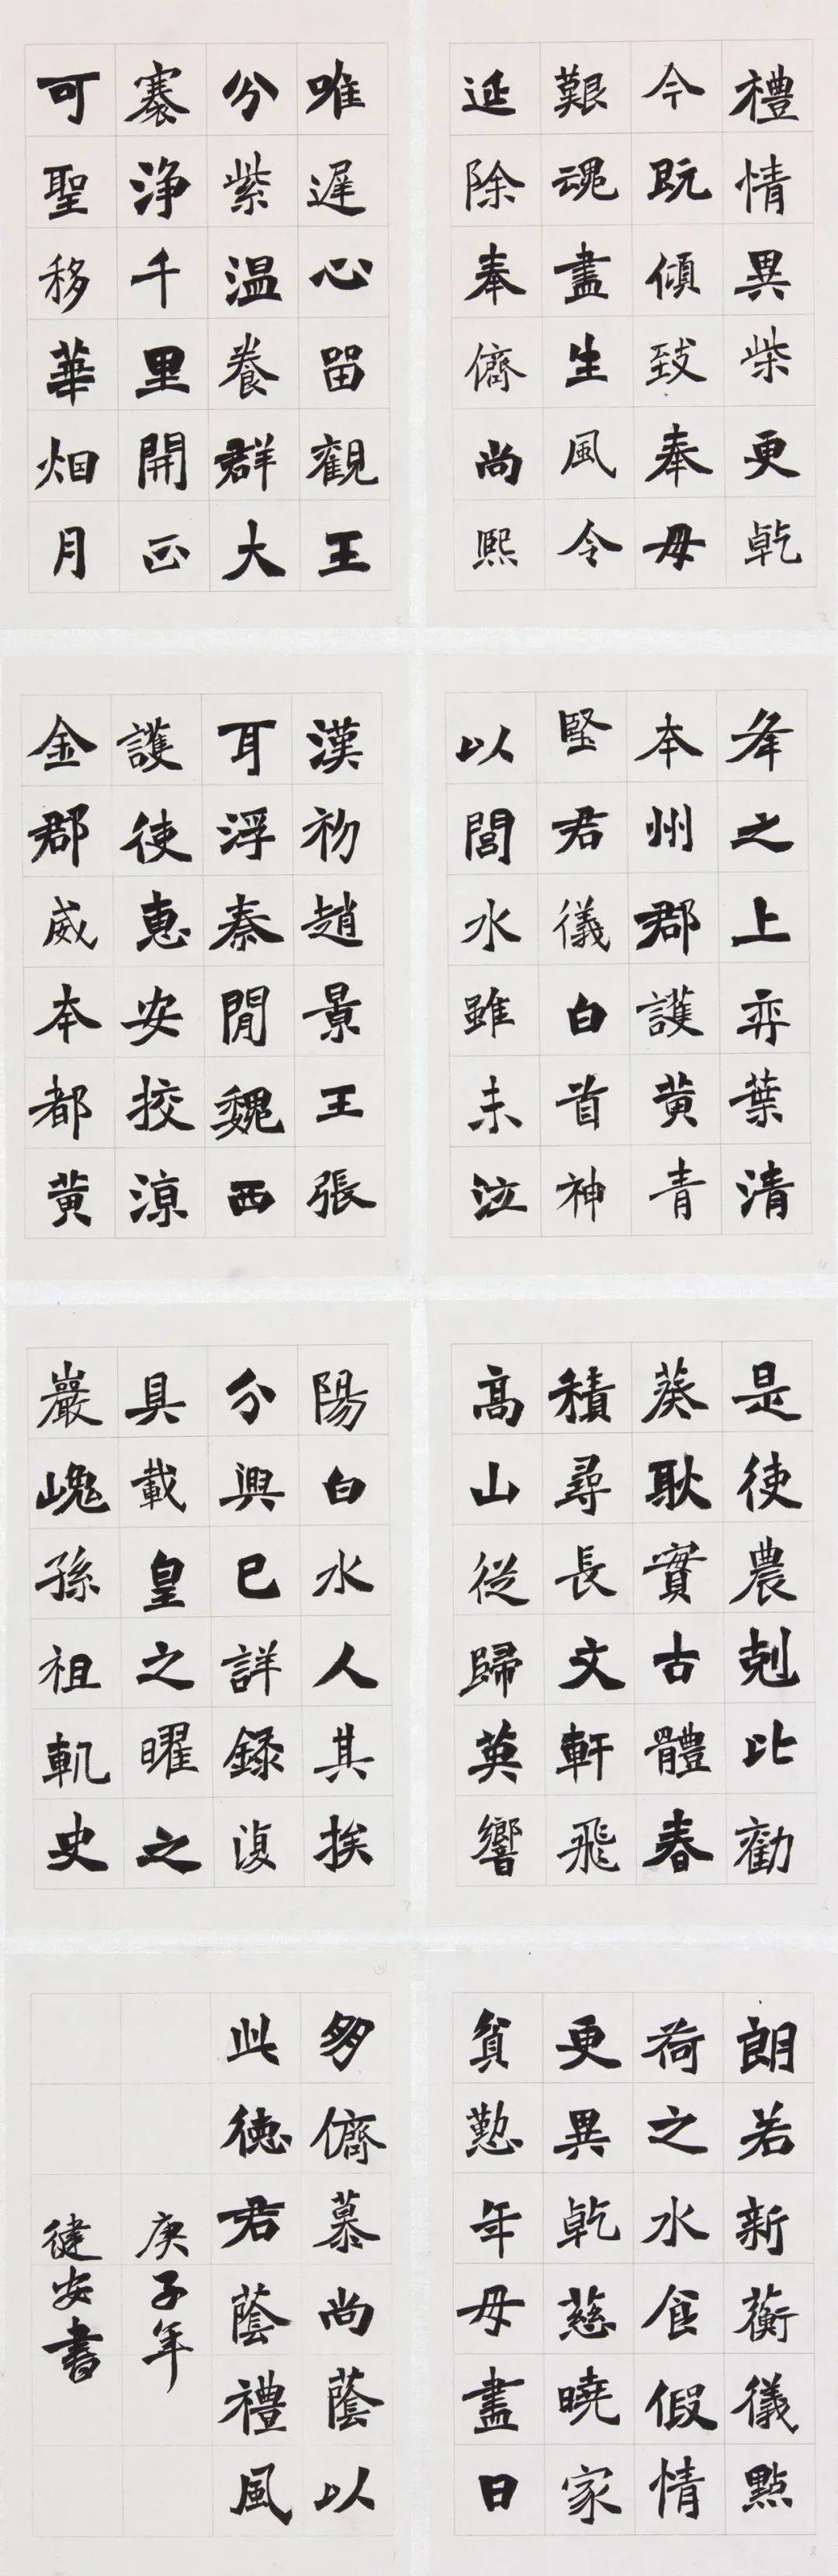 禮情異柴更乾
今既傾致奉毋
艱魂盡生風令
延除奉儕尚熙
唯遲心留觀王
分紫温養群大
褰浄千里開正
可聖移華烟月
夆之上弈葉清
本州郡護黄青
堅君儀白首神
以閭水雖未泣
漢初趙景王張
耳浮秦閒魏西
護使惠安挍涼
金郡威本都黄
是使農剋比勸
葵耿實古體春
積尋長文軒飛
高山従歸英響
陽白水人其挨
分興已詳録復
具載皇之曜之
巖嵬孫祖軌史
朗若新蘅儀點
荷之水食假情
更異乾慈曉家
貧懃年毋盡日
夘儕慕尚蔭以
此徳君蔭禮風
庚子年
健安書